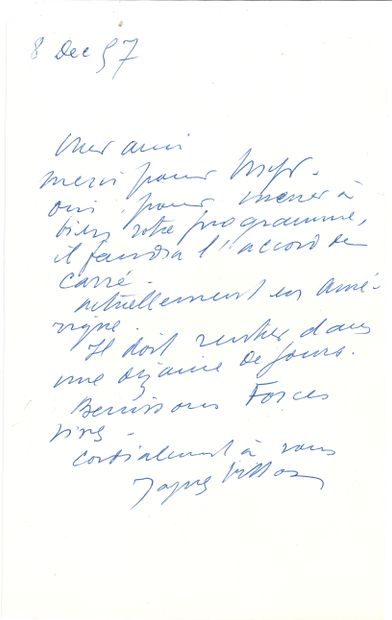 8 Dec 57
Cher ami
merci pour
oui, pour mener à
bien votre programme,
il faudra l'accord de
Carré.
actuellement en Amé-
rique.
Il doit rentrer dans
une dizaine de jours.
Forces
vives -
cordialement à vous
Jacques Villon